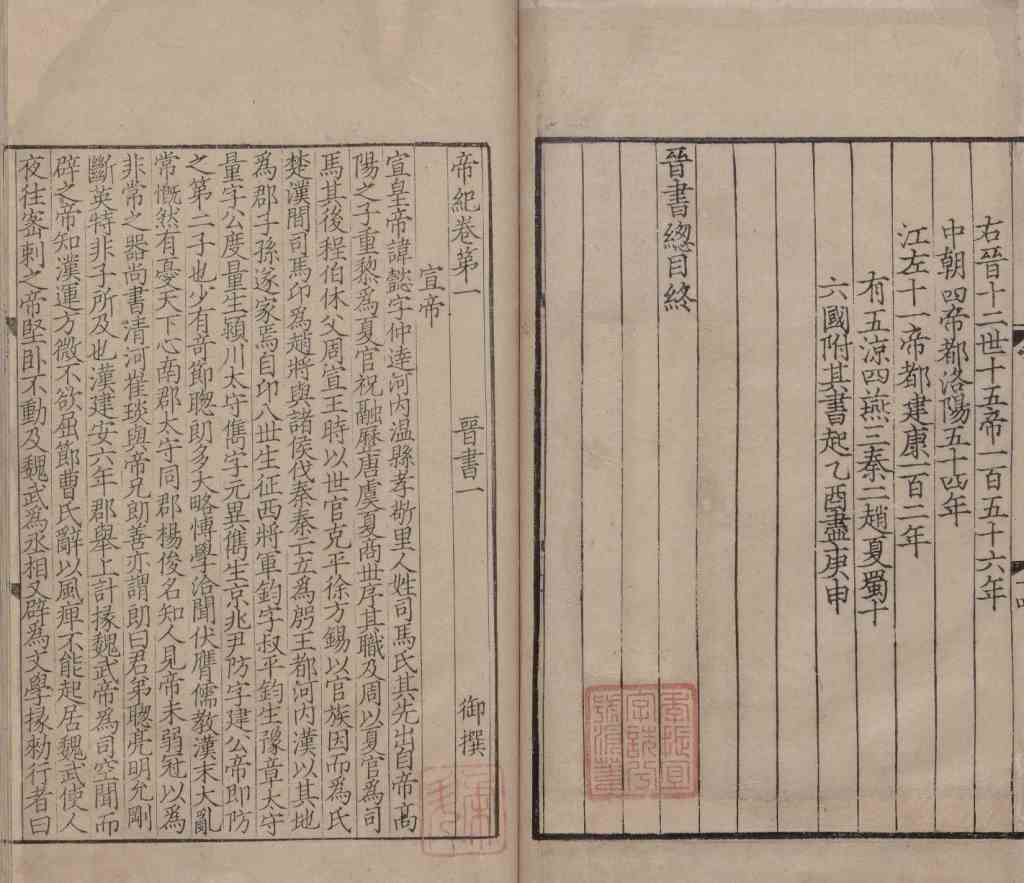 右晉十二世十五帝一百五十六年
中朝四帝都洛陽五十四年
江左十一帝都建康一百二年
有五涼四燕三秦二趙夏蜀十
六國附其書起乙酉盡庚申
晉書緫目終
帝紀卷第一 晉書一 御撰
宣帝
宣皇帝諱懿字仲達河内温縣孝敬里人姓司馬氏其先出自帝高
陽之子重黎爲夏官祝融歷唐虞夏商世序其職及周以夏官爲司
馬其後程伯休父周宣王時以世官克平徐方錫以官族因而爲氏
楚漢間司馬卬爲趙將與諸侯伐秦秦亡立爲殷王都河内漢以其地
爲郡子孫遂家焉自卬八世生征西將軍鈞字叔平鈞生豫章太守
量字公度量生潁川太守儁字元異儁生京兆尹防字建公帝即防
之第二子也少有奇節聦朗多大略博學洽聞伏膺儒教漢末大亂
常慨然有憂天下心南郡太守同郡楊俊名知人見帝未弱冠以爲
非常之器尚書清河崔琰與帝兄朗善亦謂朗曰君弟聦亮明允剛
斷英特非子所及也漢建安六年郡舉上計掾魏武帝爲司空聞而
辟之帝知漢運方微不欲屈節曹氏辭以風痺不能起居魏武使人
夜往密刺之帝堅卧不動及魏武爲丞相又辟爲文學掾勑行者曰